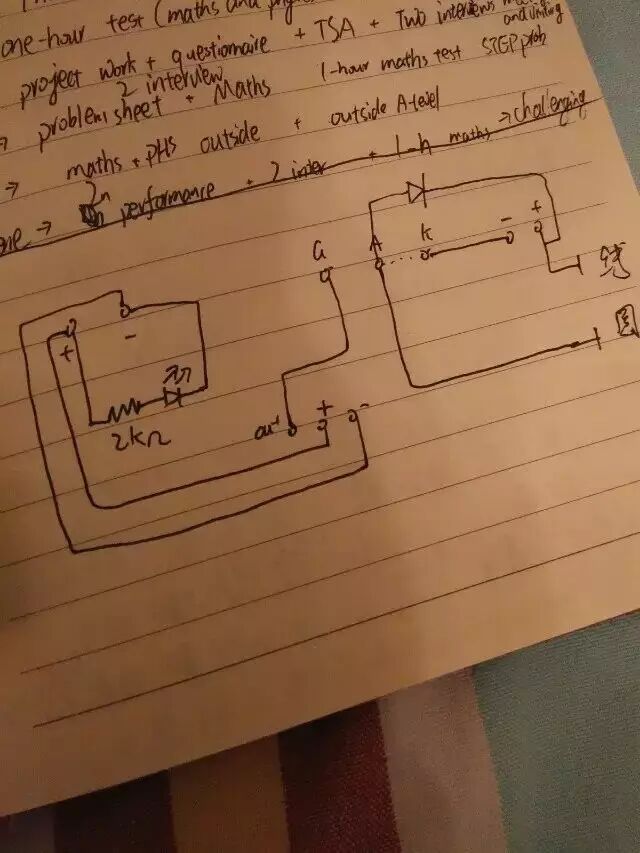 one-hour test (maths and
project work + questionnaire + TSA + Two interviews
2 interview
and writing
→ problem sheet + Maths 1-hour maths test STEP prob
→ maths + PHS outside + outside A-level
→ performance + 2 inter + 1-h maths → challenging
G A K - +
+ -
2kΩ
out + -
圆